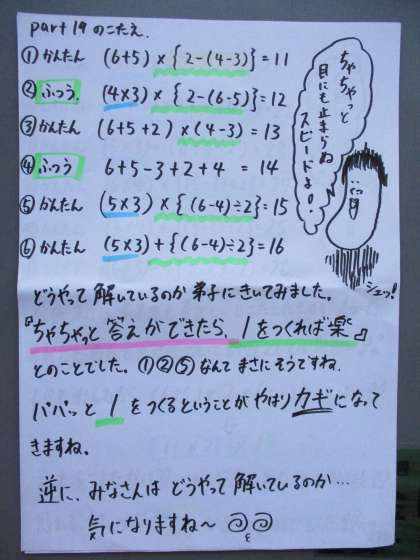 part 19 のこたえ.
① かんたん (6+5)×{2-(4-3)}=11
② ふつう. (4×3)×{2-(6-5)}=12
③ かんたん (6+5+2)×(4-3)=13
④ ふつう 6+5-3+2+4 = 14
⑤ かんたん (5×3)×{(6-4)÷2}=15
⑥ かんたん (5×3)+{(6-4)÷2}=16
ちゃちゃっと
目にも止まらぬ
スピードよ!!
シュッ!
どうやって解いているのか 弟子にきいてみました。
『ちゃちゃっと答えができたら、1をつくれば楽』
とのことでした。①②⑤なんてまさにそうですね.
パパッと1をつくるということがやはりカギになって
きますね。
逆に、みなさんはどうやって解いているのか…
気になりますね〜